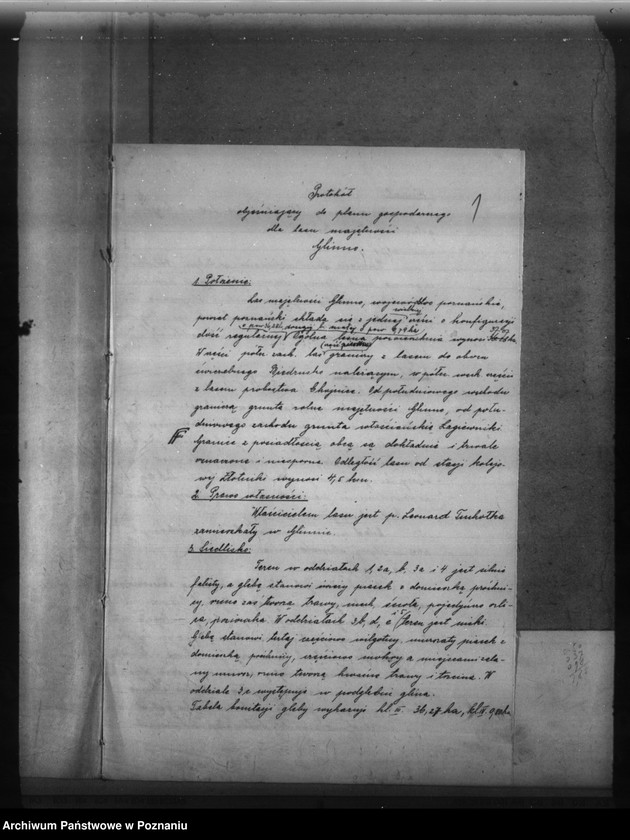 Protokół
objaśniający do planu gospodarczego
dla lasu majętności
Glinno.
1
1. Położenie:
Las majętności Glinno, województwo poznańskie,
powiat poznański składa się z jednej części o konfiguracji
dość regularnej. Ogólna powierzchnia wynosi
W części półn. zach. las graniczy z lasem do obozu
ćwiczebnego Biedrusko należącym, w półn. wsch. części
z lasem probostwa Chojnica. Od południowego wschodu
graniczą grunta rolne majętności Glinno, od połu-
dniowego zachodu grunta włościańskie Łagiewniki
Granice z posiadłością obcą są dokładnie i trwale
oznaczone i niesporne. Odległość lasu od stacji kolejo-
wej Złotniki wynosi 4,5 km.
2. Prawo własności:
Właścicielem lasu jest p. Leonard
zamieszkały w Glinnie.
3. Siedlisko:
Teren w oddziałach 1, 2a, b, 3a i 4 jest silnie
falisty, a glebę stanowi świeży piasek z domieszką próchni-
cy, runo zaś tworzą trawy, mech, pojedyńczo
W oddziałach 3b, d, teren jest niski.
Glebę stanowi tutaj częściowo wilgotny, piasek z
domieszką próchnicy, częściowo mokry a miejscami
runo tworzą kwaśne trawy i trzcina. W
oddziale 3,c występuje w podglebiu glina.
Tabela bonitacji gleby wykazuje kl. III 36,27 ha, kl. IV.
Archiwum Państwowe w Poznaniu